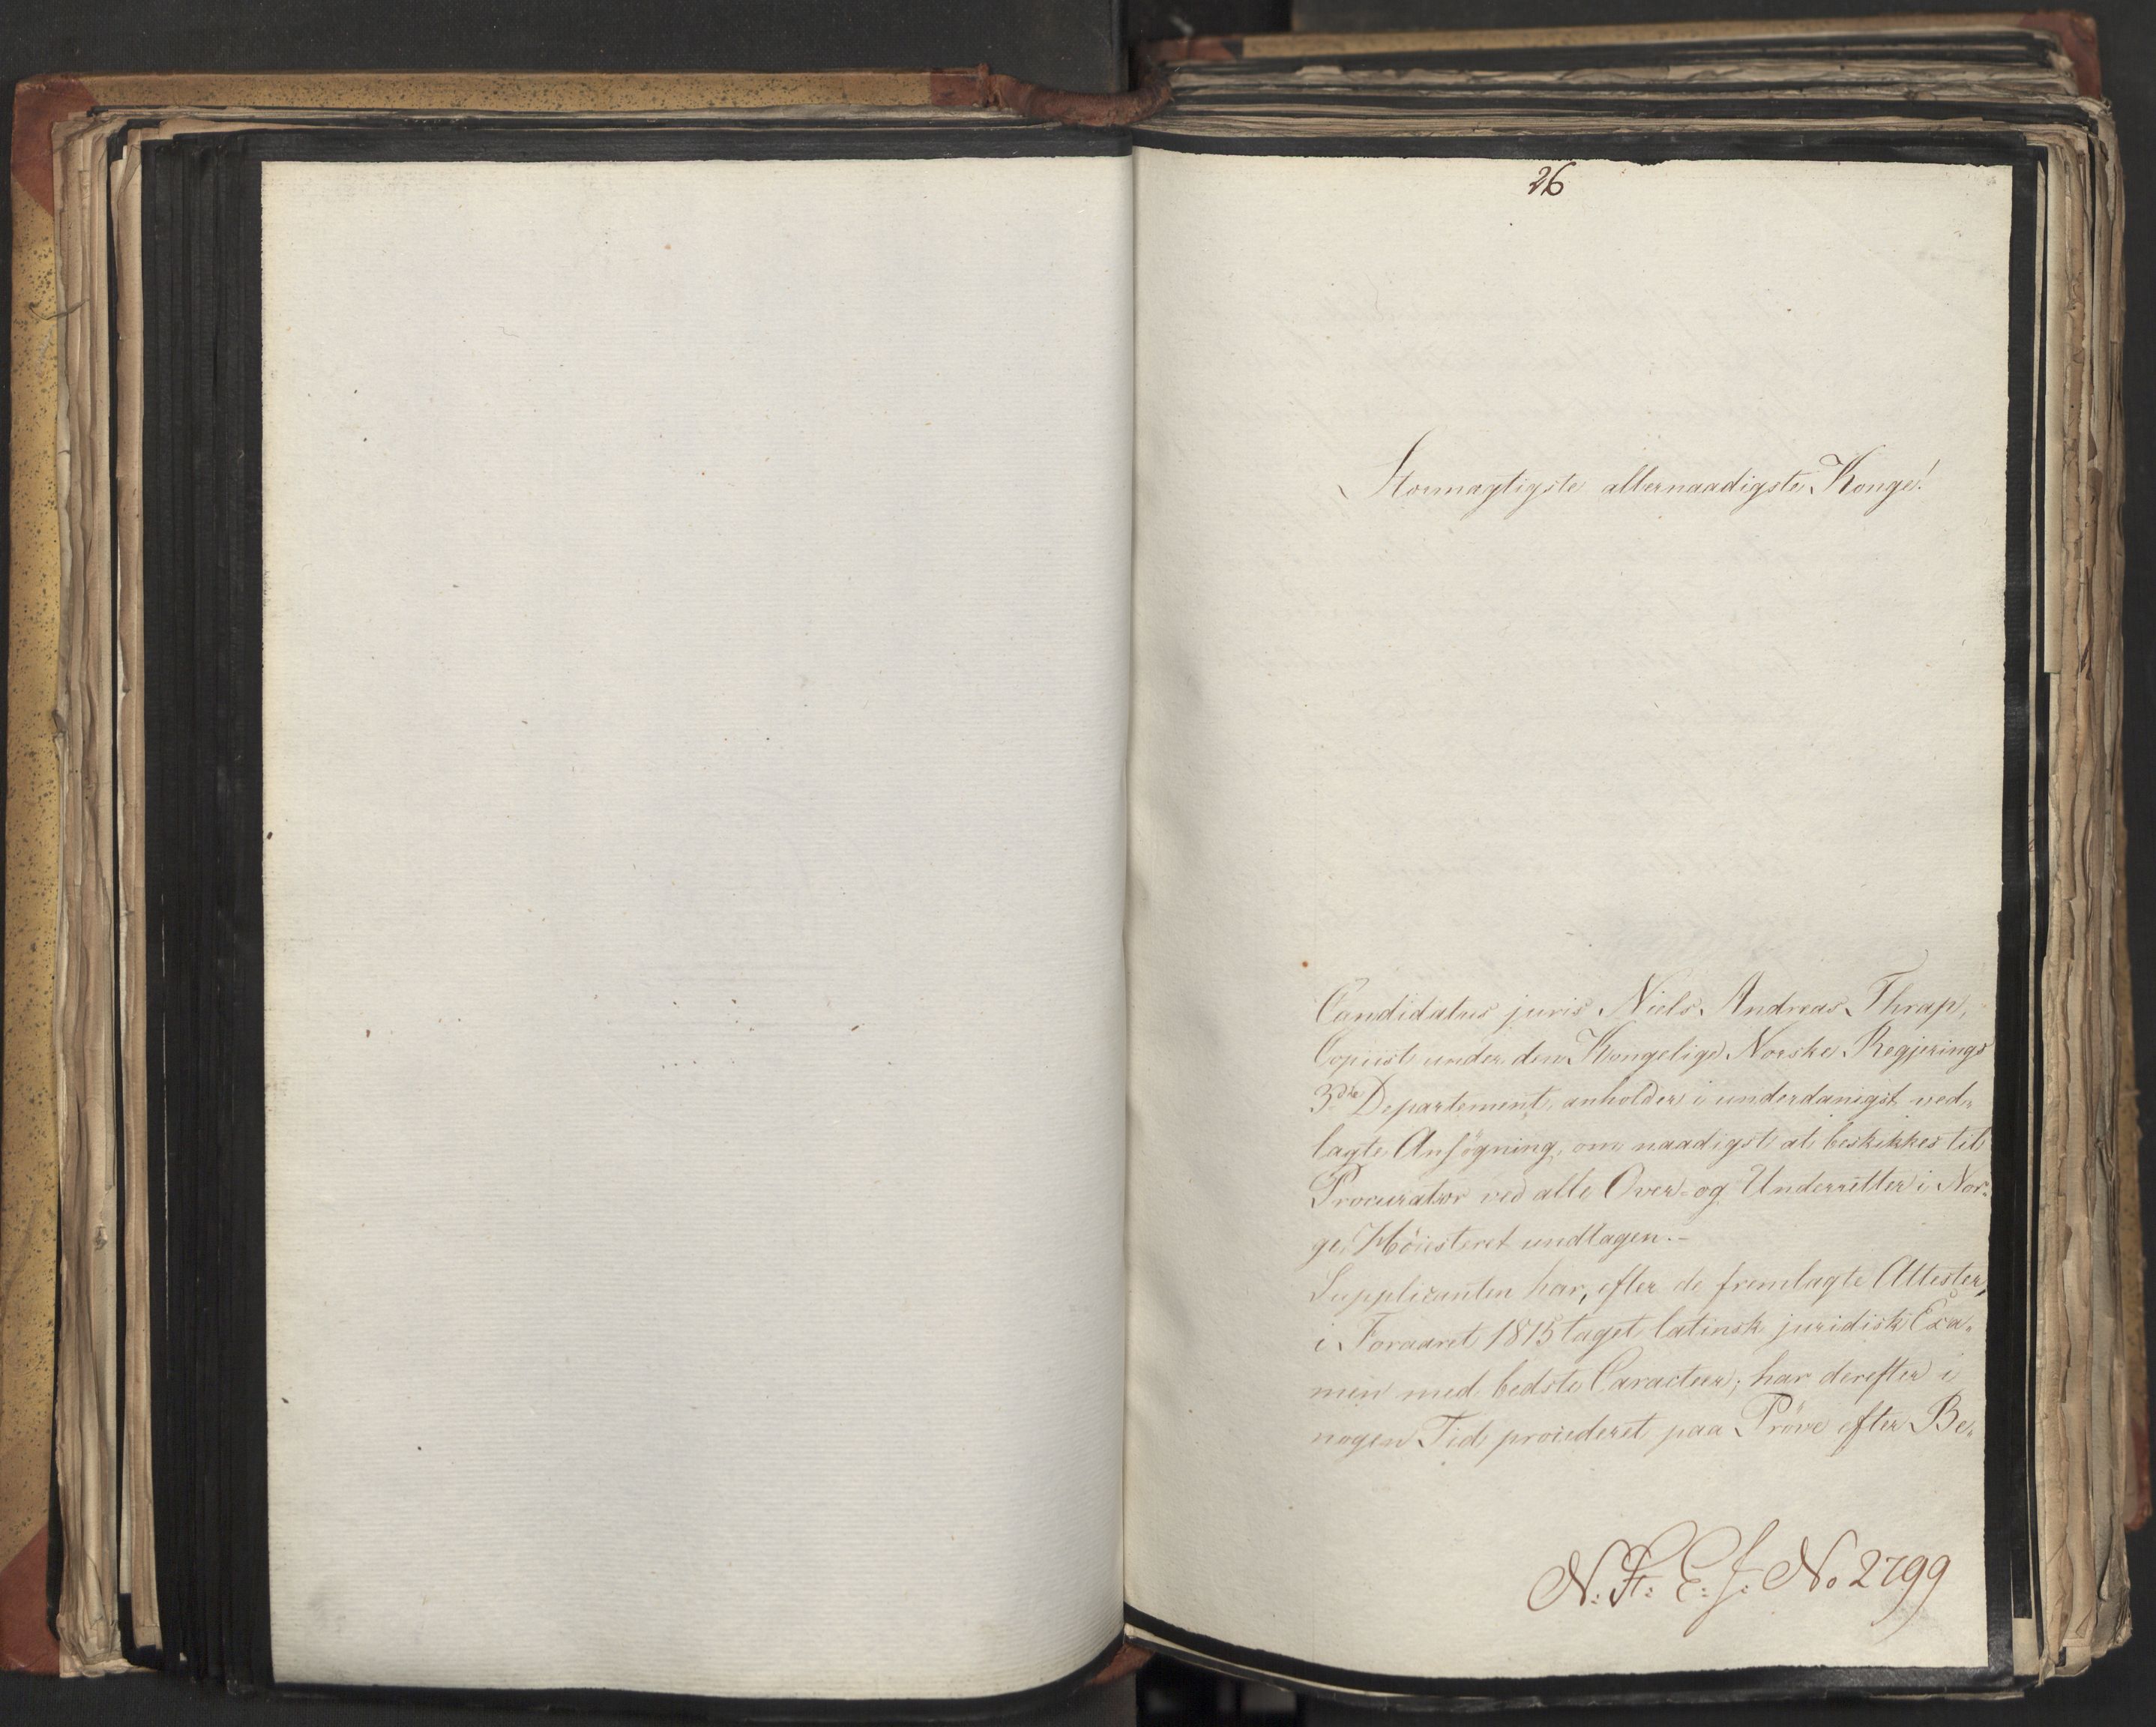 26
Stormægtigste allernaadigste Konge!
Candidatus juris Niels Andreas Thrap,
Copiist under den Kongelige Norske Regjerings
3die Departement, anholder i underdanigst ved-
lagte Ansögning, om naadigst at beskikkes til
Procurator ved alle Over- og Underretter i Nor-
ge, Höiesteret undtagen.-
Supplicanten har, efter de fremlagte Attester,
i Foraaret 1815 taget latinsk juridisk Exa-
men med bedste Caracteer; har derefter i
nogen Tid procederet paa Pröve efter Be-
N: F: E: f: No 2799